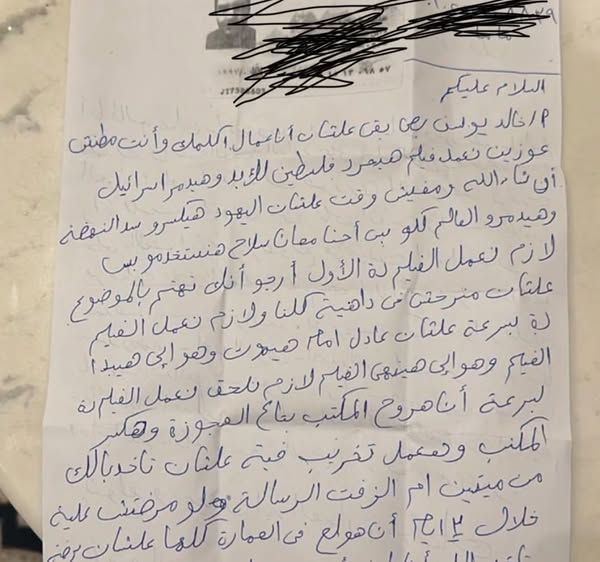 السلام عليكم
م/خالد يوسف بص بقى علشان أنا عمال أكلمك وأنت مطنش
عوزين نعمل فيلم هيحرر فلسطين للأبد وهيدمر اسرائيل
أن شاء الله ومفيش وقت علشان اليهود هيكسرو سد النهضة
وهيدمرو العالم كلو بس أحنا معانا سلاح هنستخدمو بس
لازم نعمل الفيلم دة الأول أرجو أنك تهتم بالموضوع
علشان منرحش فى داهية كلنا ولازم نعمل الفيلم
دة بسرعة علشان عادل امام هيموت وهو إلى هيبدأ
الفيلم وهو إلى هينهى الفيلم لازم نلحق نعمل الفيلم دة
بسرعة أنا هروح المكتب بتاع العجوزة وهكسر
المكتب وهعمل تخريب فيه علشان تاخد بالك
من ميتين ام الزفت الرسالة ولو مرضتش علية
خلال ٢ ايام أنا هولع فى العمارة كلها علشان